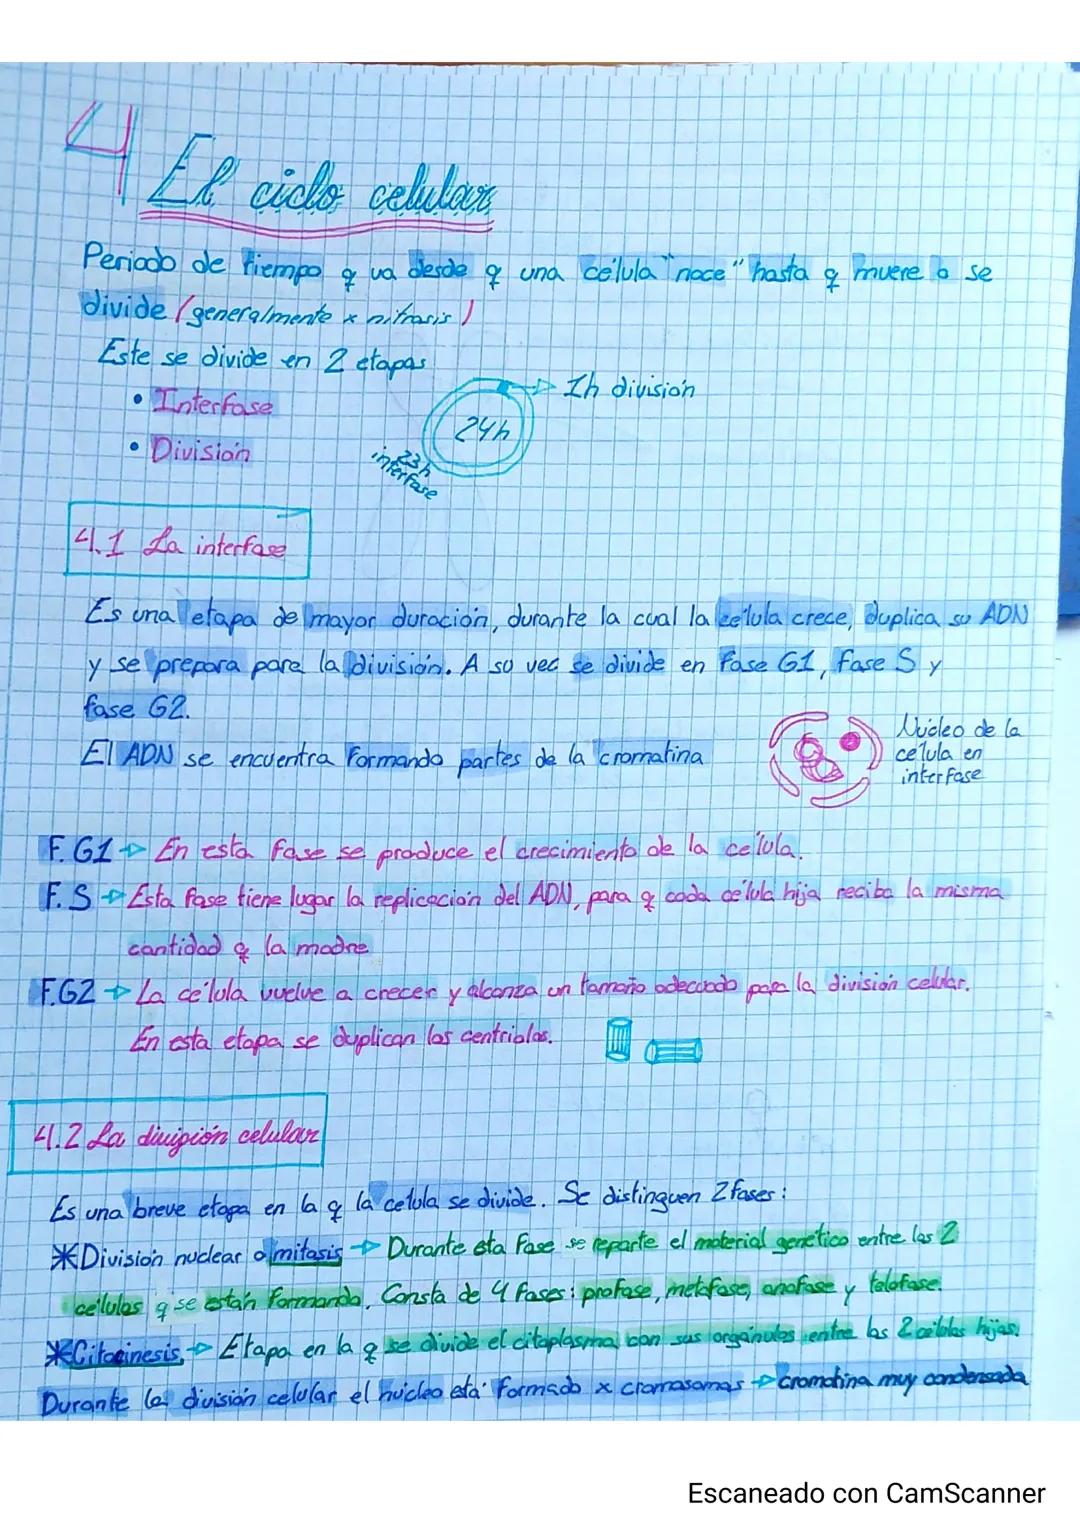 4 El ciclo celular
Periodo de tiempo q va desde q una célula "nace" hasta q muere o se
divide (generalmente x nitrosis)
Este se divide en 2 etapas
• Interfase
• División
1h división
24h
23h
interfase
4.1 La interfase
Es una etapa de mayor duración, durante la cual la célula crece, duplica su ADN
y se prepara para la división. A su vec se divide en Fase G1, Fase S y
fase G2.
El ADN se encuentra formando partes de la cromatina
Núcleo de la
célula en
interfase
F. G1 → En esta fase se produce el crecimiento de la célula.
F. S → Esta fase tiene lugar la replicación del ADN, para q cada célula hija reciba la misma
cantidad q la madre
F.G2 → La célula vuelve a crecer y alcanza un tamaño adecuado para la división celular.
En esta etapa se duplican los centriolos.
4.2 La división celular
Es una breve etapa en la q la celula se divide. Se distinguen 2 fases:
* División nuclear o mitosis → Durante esta fase se reparte el material genético entre las 2
células q se están formando. Consta de 4 fases: profase, metafase, anafase y telofase.
* Citocinesis, → Etapa en la q se divide el citoplasma con sus orgánulos entre las 2 células hijas.
Durante la división celular el núcleo está formado x cromosomas → cromatina muy condensada
Escaneado con CamScanner